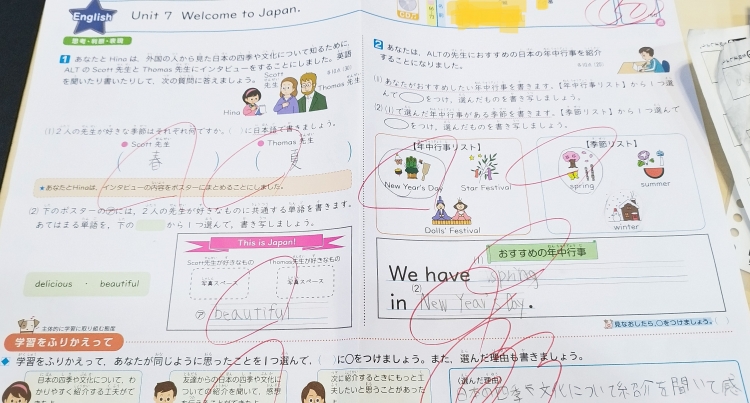 English
Unit 7 Welcome to Japan.
思考・判断・表現
1 あなたと Hina は、外国の人から見た日本の四季や文化について知るために、
ALTの Scott 先生と Thomas 先生にインタビューをすることにしました。英語
を聞いたり書いたりして、次の質問に答えましょう。
Scott 先生
Thomas 先生
Hina
(1) 2人の先生が好きな季節はそれぞれ何ですか。( )に日本語で書きましょう。
Scott 先生
Thomas 先生
( 春 )
( 夏 )
★あなたとHinaは、インタビューの内容をポスターにまとめることにしました。
(2) 下のポスターの㋐には、2人の先生が好きなものに共通する単語を書きます。
あてはまる単語を、下の から1つ選んで、書き写しましょう。
This is Japan!
Scott先生が好きなもの
Thomas先生が好きなもの
写真スペース
写真スペース
㋐ beautiful
delicious ・ beautiful
2 あなたは、ALTの先生におすすめの日本の年中行事を紹介
することになりました。
(1) あなたがおすすめしたい年中行事を書きます。【年中行事リスト】から1つ選
んで をつけ、選んだものを書き写しましょう。
(2) (1)で選んだ年中行事がある季節を書きます。【季節リスト】から1つ選んで
をつけ、選んだものを書き写しましょう。
【年中行事リスト】
New Year's Day
Star Festival
Dolls' Festival
【季節リスト】
spring
summer
winter
おすすめの年中行事
We have spring
(2)
in New Year's Day.
見なおしたら、○をつけましょう。( )
主体的に学習に取り組む態度
学習をふりかえって
◆ 学習をふりかえって、あなたが同じように思ったことを1つ選んで、( )に○をつけましょう。また、選んだ理由も書きましょう。
日本の四季や文化について、わ
かりやすく紹介する工夫がで
友達からの日本の四季や文化に
ついての紹介を聞いて、感想
次に紹介するときにもっと工
夫したいと思うことがあった
(選んだ理由)
日本の四季や文化について紹介を聞いて感